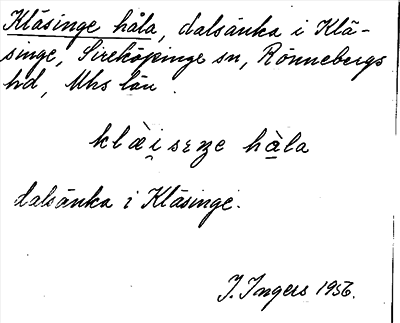 Kläsinge håla, dalsänka i Klä-
singe, Sireköpinge sn, Rönnebergs
hd, Mhs län.
klæ̀i̯sɛŋe hàla
dalsänka i Kläsinge.
J. Ingers 1956.